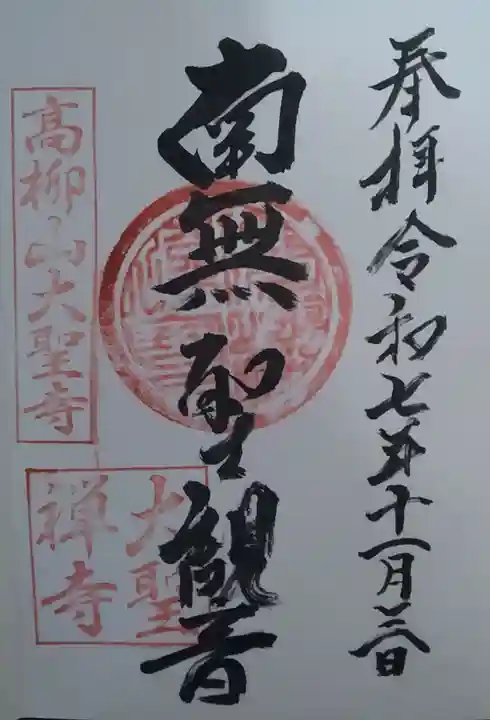 奉拝 令和七年十一月三日
南無聖観音
高柳山大聖寺
大聖
禅寺